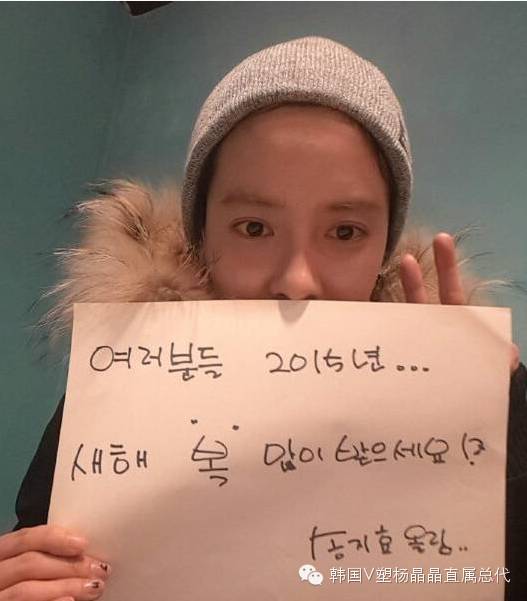 여러분들 2015년...
새해 복 많이 받으세요!?
송지효 올림..
韩国V塑杨晶晶直属总代